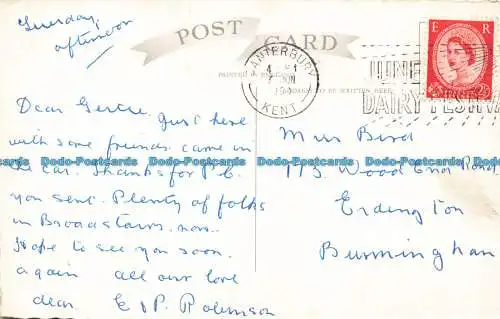 Tuesday
afternoon
POST CARD
PRINTED
CANTERBURY
KENT
E R
JUNE
DAIRY FESTIVA
Dear Gertie. Just here
with some friends came in
car. Thanks for P.C.
you sent. Plenty of folks
in Broadstairs now.
Hope to see you soon
again all our love
dear. E & P. Robinson
Miss Bird
173 Wood End Road
Erdington
Burmingham
Dodo-Postcards Dodo-Postcards Dodo-Postcards Dodo-Postcards